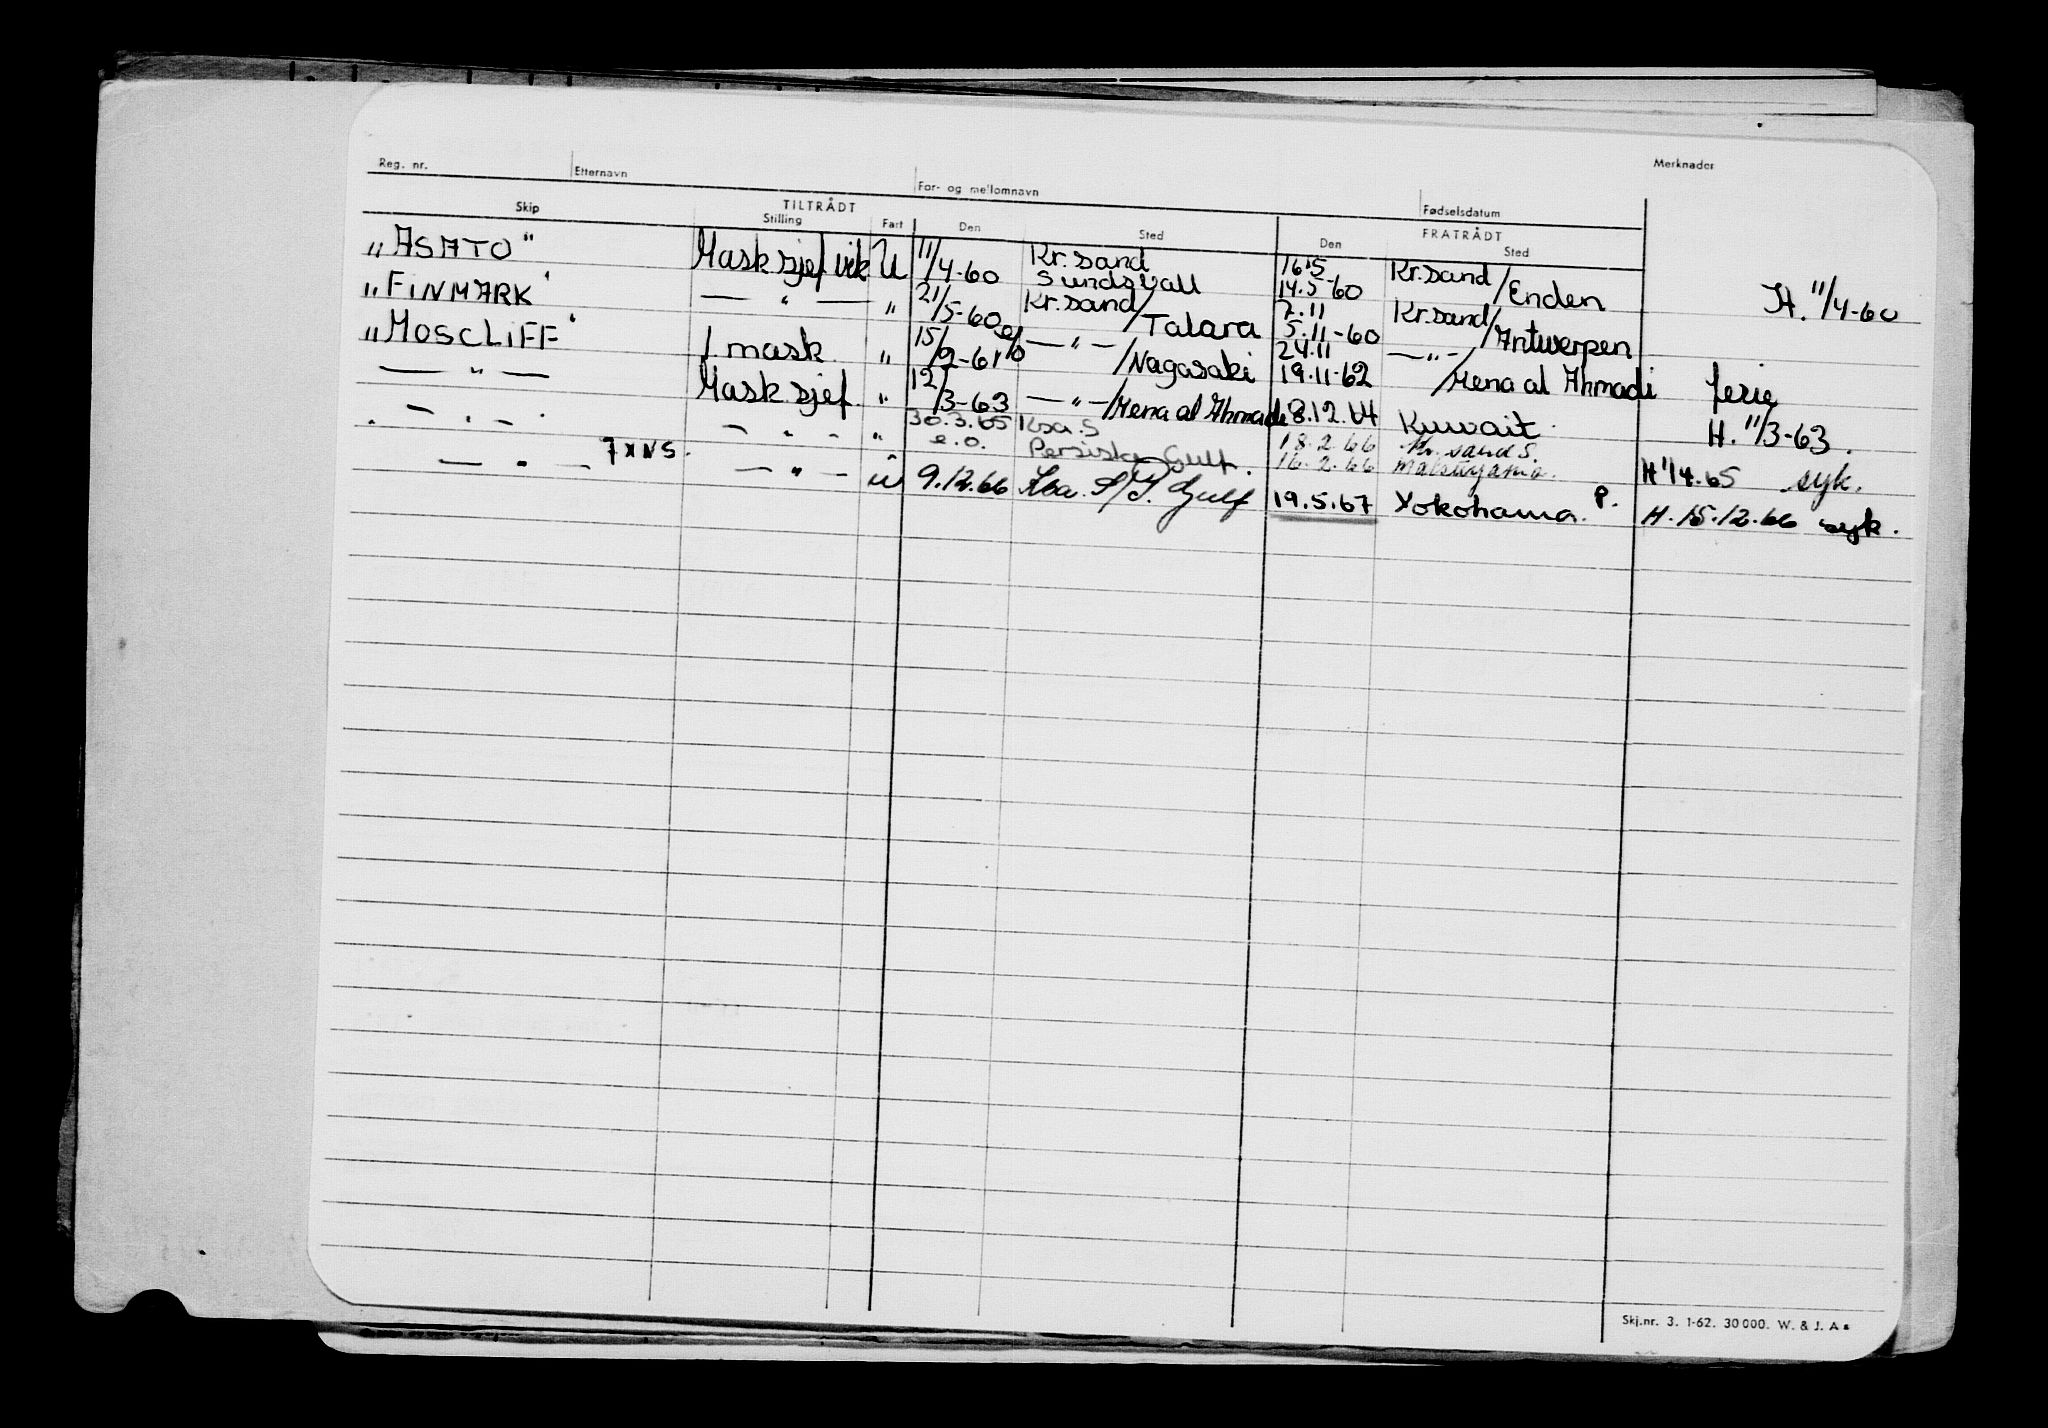 Reg. nr. Etternavn For- og mellomnavn Fødselsdatum Merknader
TILTRÅDT FRATRÅDT
Skip Stilling Fart Den Sted Den Sted
"ASATO" Mask sjef vik U 11/4-60 Kr.sand Sundsvall 16.5 14.5-60 Kr.sand/Enden H. 11/4-60
"FINMARK" — " — " 21/5-60 Kr.sand/Talara 2.11 5.11-60 Kr.sand/Antwerpen
"MOSCLIFF" 1. mask " 15/9-61 — " — /Nagasaki 24.11 19.11-62 — " — /Mena al Ahmadi ferie
— " — Mask sjef " 12/3-63 — " — /Mena al Ahmadi 18.12.64 Kuwait H. 11/3-63.
— " — — " — " 30.3.65 e.o. Ksa. S Persiska Gulf. 18.2.66 16.2.66 Kr. sand S. H 1/4.65 syk.
— " — 7XNS. — " — U 9.12.66 P. Gulf 19.5.67 Yokohama. P. H. 15.12.66 syk.
Skj.nr. 3. 1-62. 30 000. W. & J. A s